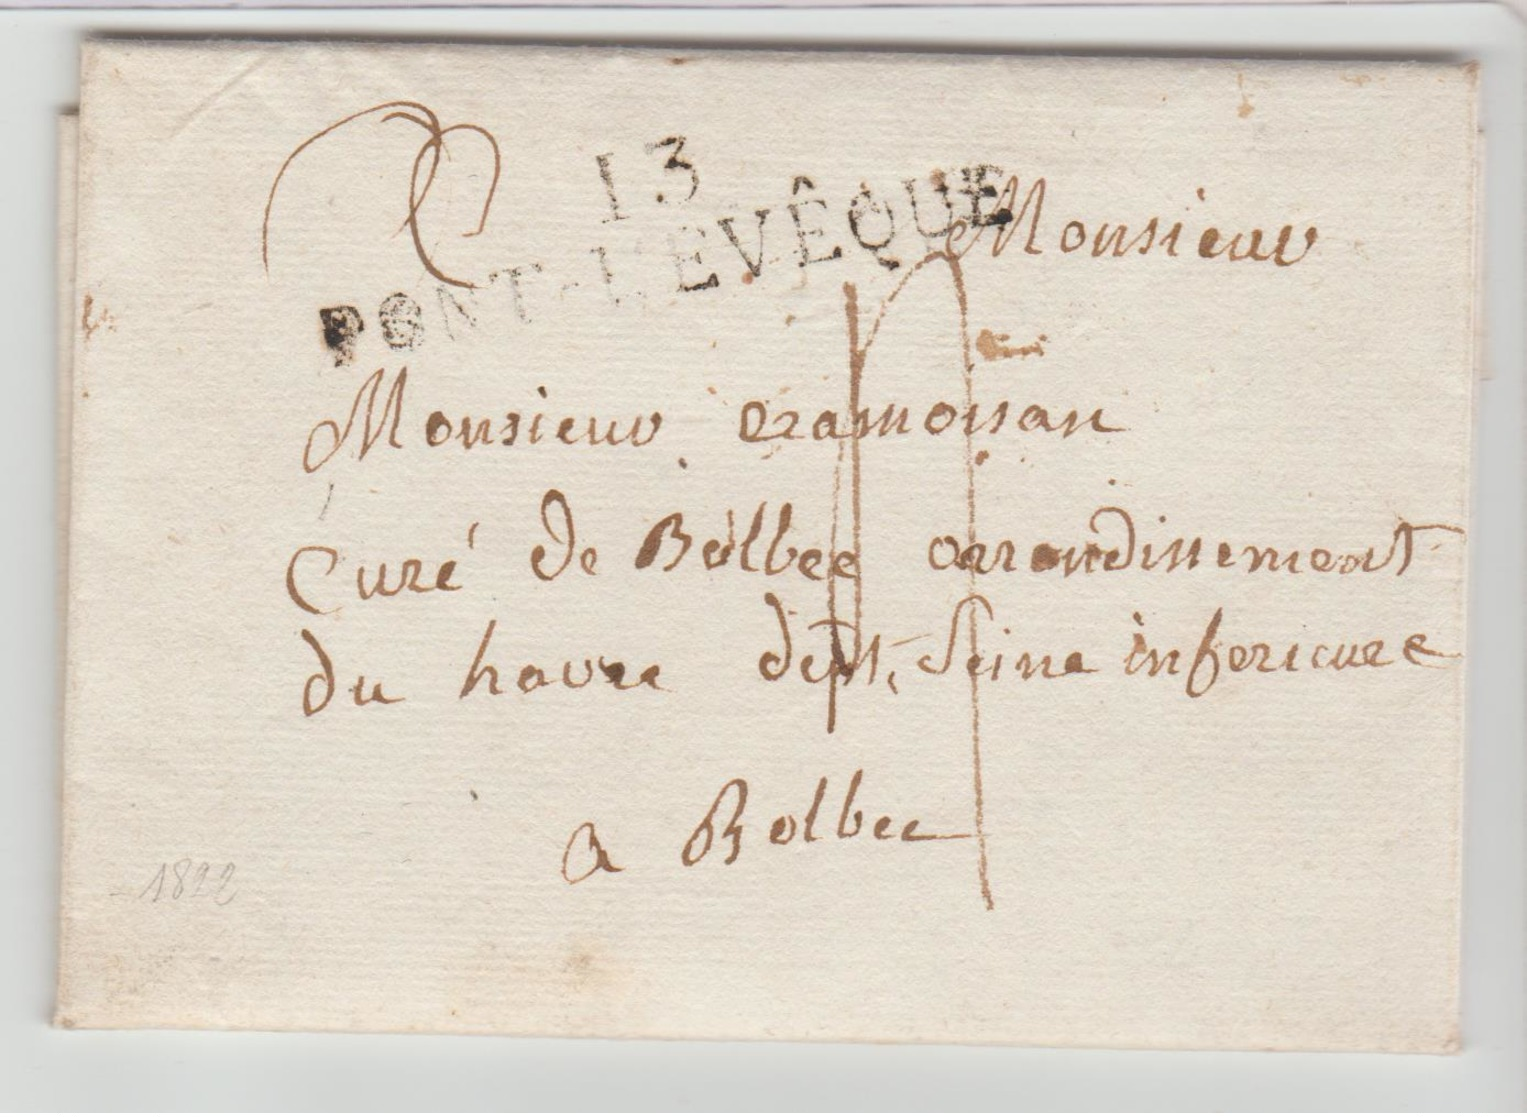 13
PONT-L'EVÊQUE
Monsieur
Monsieur
curé de Bolbec arrondissement
du havre dept, Seine inferieure
a Bolbec
1822